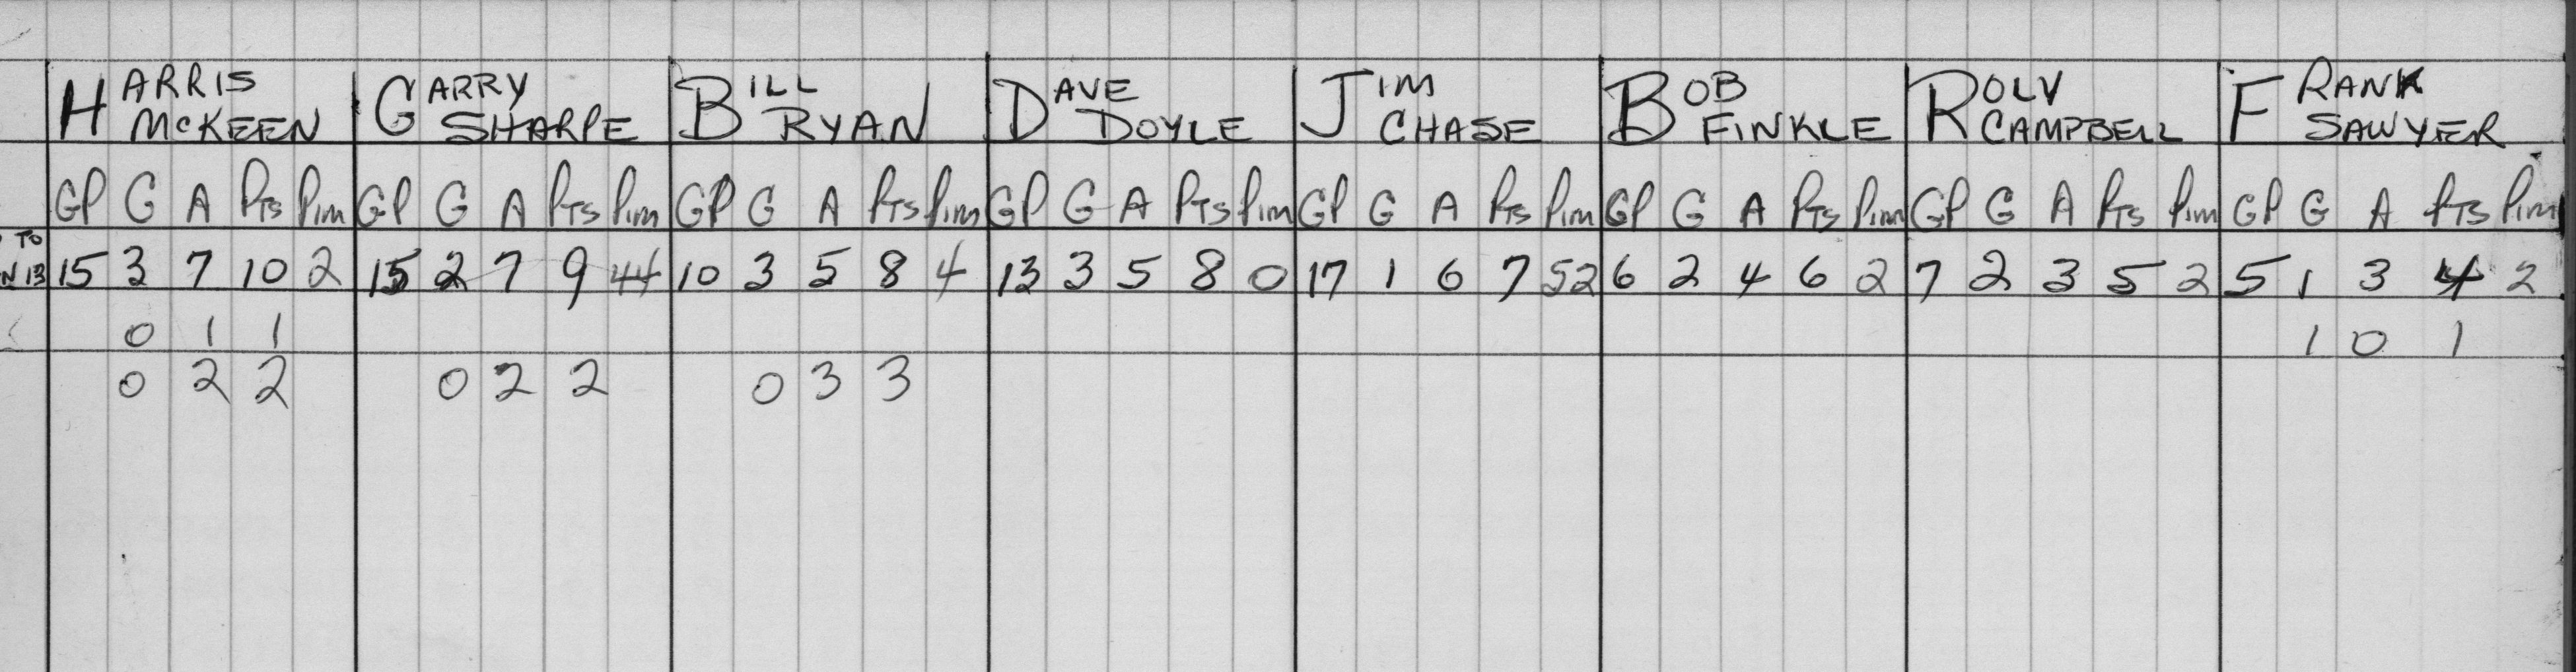 HARRIS McKEEN GARRY SHARPE BILL RYAN DAVE DOYLE JIM CHASE BOB FINKLE ROLV CAMPBELL FRANK SAWYER
GP G A PTS Pim GP G A PTS Pim GP G A PTS Pim GP G A PTS Pim GP G A PTS Pim GP G A PTS Pim GP G A PTS Pim GP G A PTS Pim
TO
N 13 15 3 7 10 2 15 2 7 9 44 10 3 5 8 4 13 3 5 8 0 17 1 6 7 52 6 2 4 6 2 7 2 3 5 2 5 1 3 4 2
0 1 1 1 0 1
0 2 2 0 2 2 0 3 3